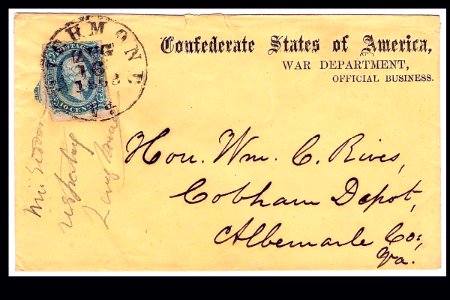 Confederate States of America,
WAR DEPARTMENT,
OFFICIAL BUSINESS.
Hon. Wm. C. Rives,
Cobham Depot,
Albemarle Co,
Va.